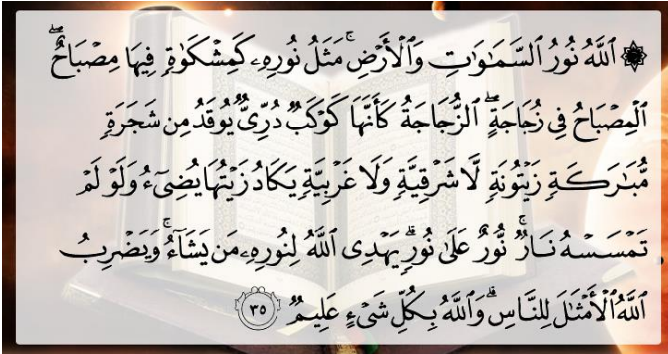 ۞ ٱللَّهُ نُورُ ٱلسَّمَـٰوَٰتِ وَٱلْأَرْضِ ۚ مَثَلُ نُورِهِۦ كَمِشْكَوٰةٍ فِيهَا مِصْبَاحٌ ۖ
ٱلْمِصْبَاحُ فِى زُجَاجَةٍ ۖ ٱلزُّجَاجَةُ كَأَنَّهَا كَوْكَبٌ دُرِّىٌّ يُوقَدُ مِن شَجَرَةٍ
مُّبَـٰرَكَةٍ زَيْتُونَةٍ لَّا شَرْقِيَّةٍ وَلَا غَرْبِيَّةٍ يَكَادُ زَيْتُهَا يُضِىٓءُ وَلَوْ لَمْ
تَمْسَسْهُ نَارٌ ۚ نُّورٌ عَلَىٰ نُورٍ ۗ يَهْدِى ٱللَّهُ لِنُورِهِۦ مَن يَشَآءُ ۚ وَيَضْرِبُ
ٱللَّهُ ٱلْأَمْثَـٰلَ لِلنَّاسِ ۗ وَٱللَّهُ بِكُلِّ شَىْءٍ عَلِيمٌ ٣٥